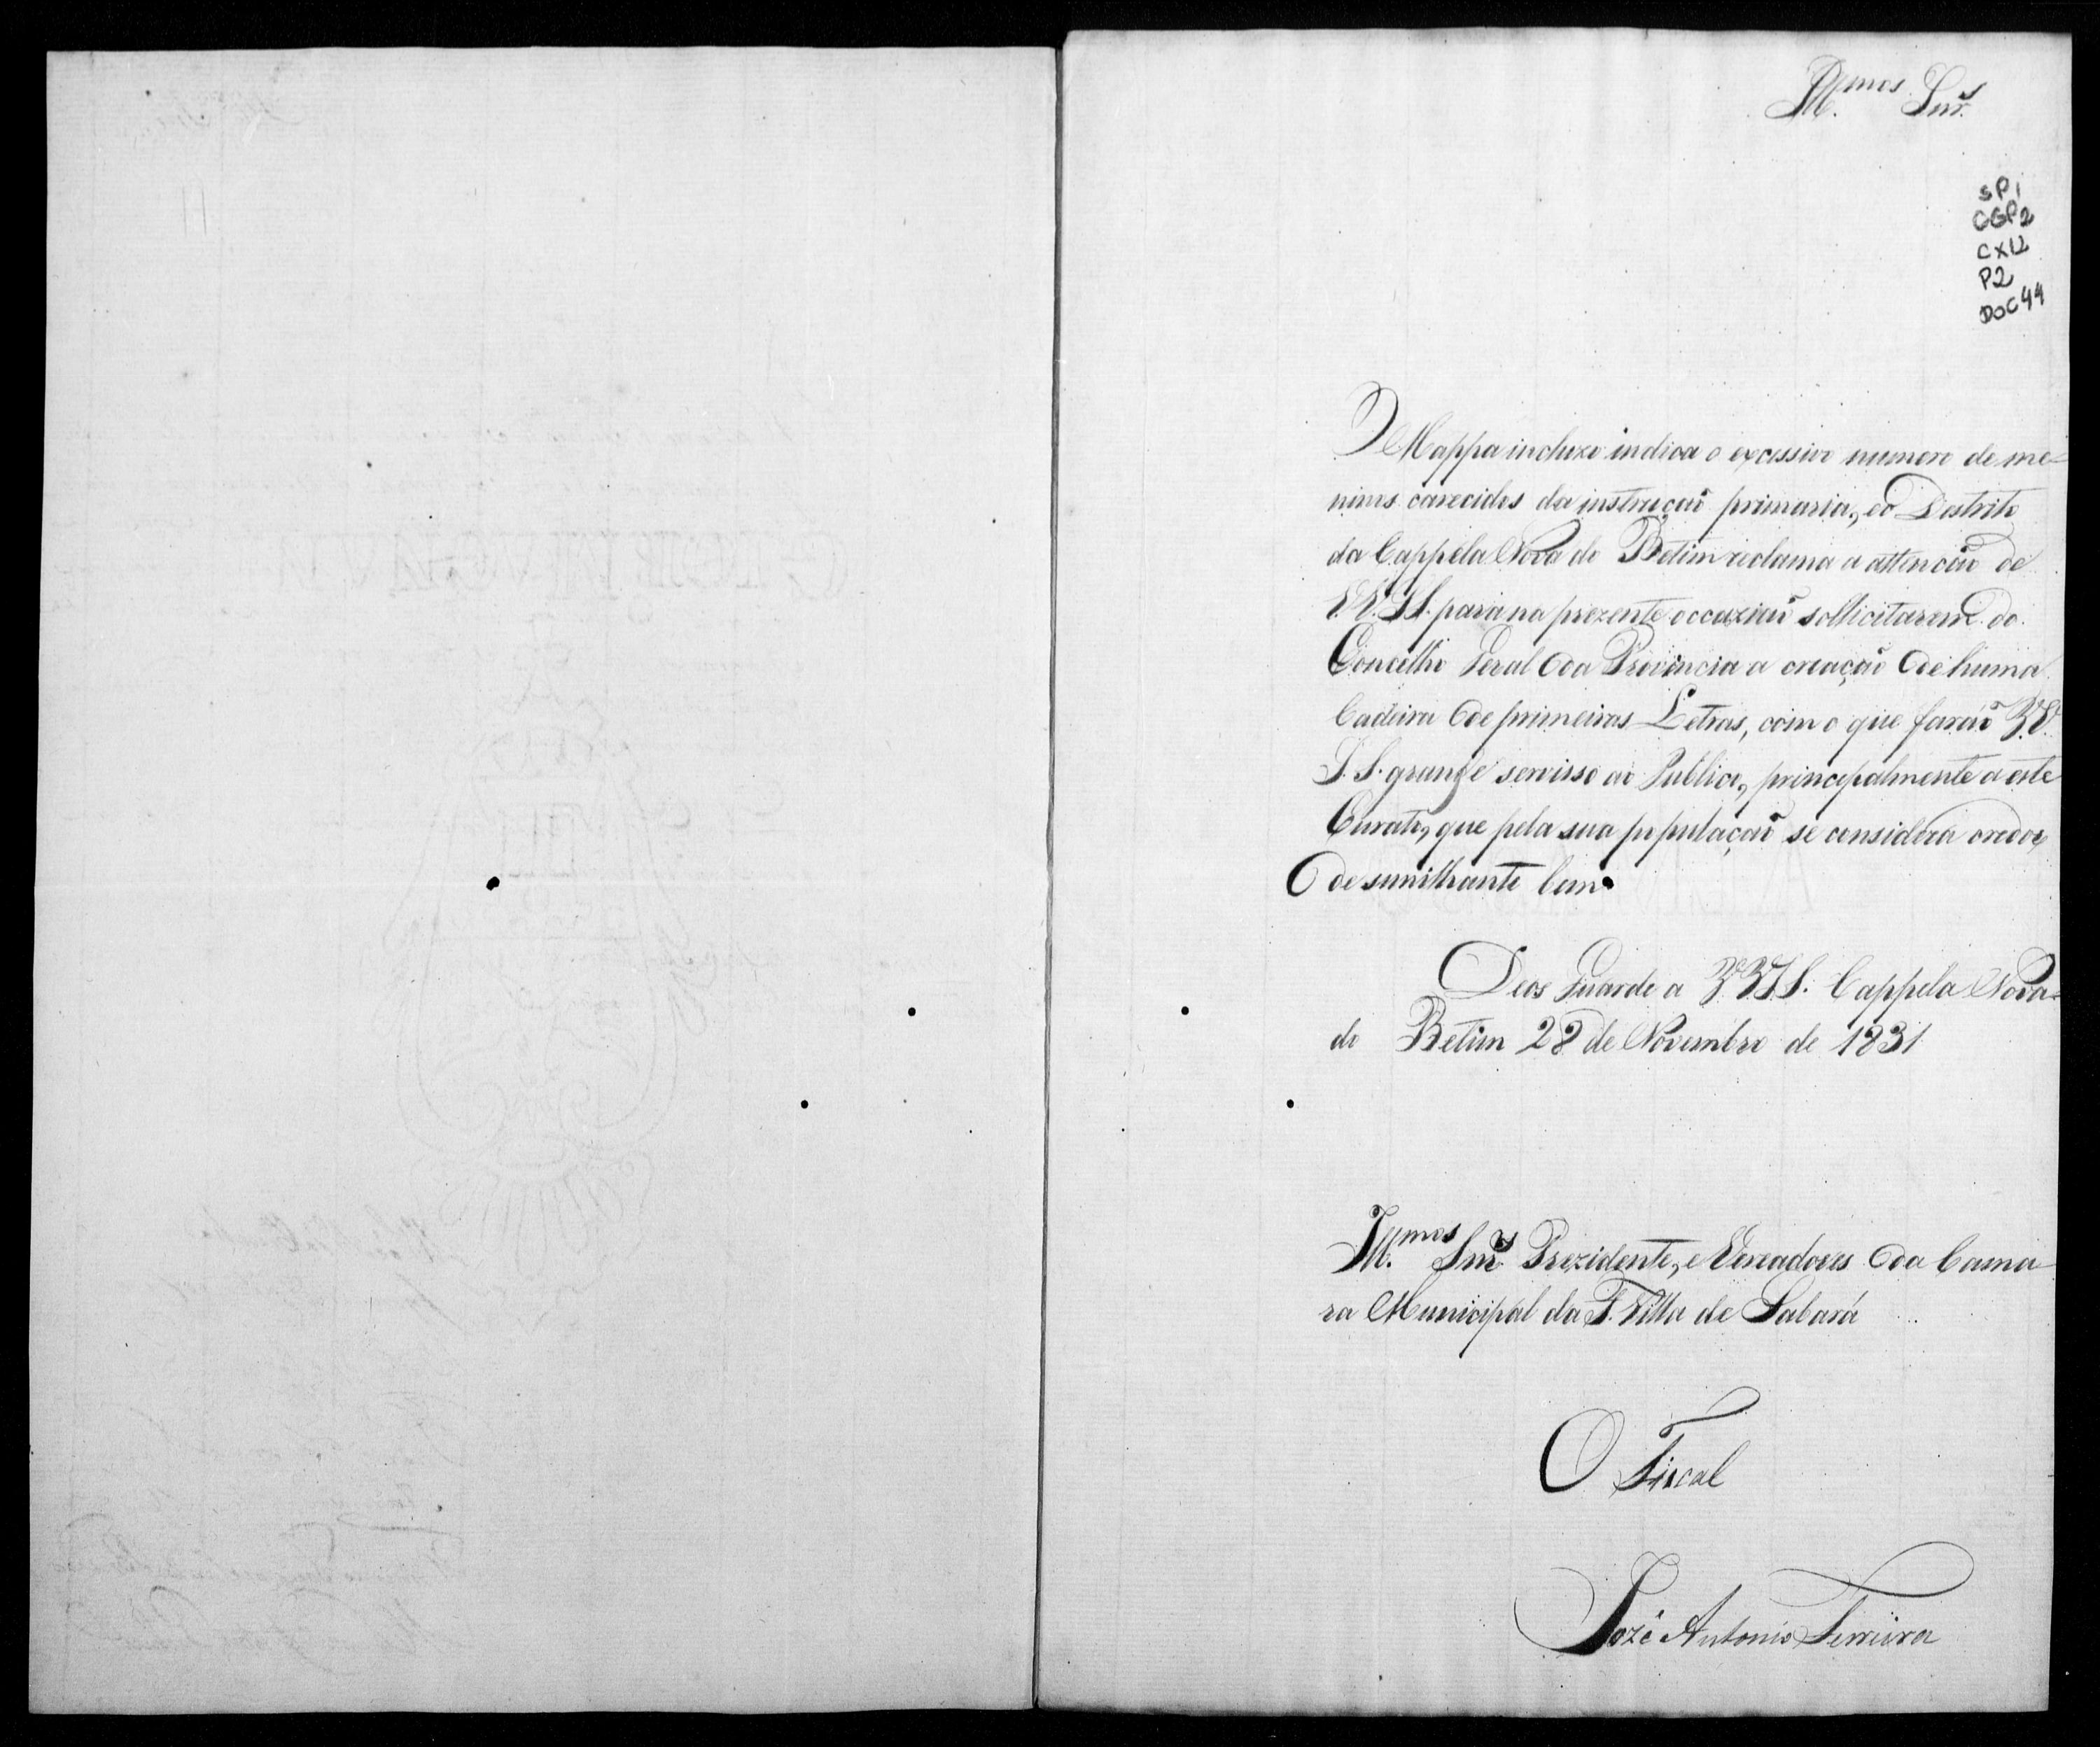 Ill.mos Snr.s
SP1
CGP2
CX12
P2
DOC 44
O Mappa incluzo indica o excessivo numero de me-
ninos carecidos da instruçaõ primaria, e o Destrito
da Cappela Nova do Betim reclama a attencaõ de
VV. SS. para na prezente occaziaõ sollicitarem do
Concelho Geral da Provincia a creaçaõ de huma
Cadeira de primeiras Letras, com o que faraõ VV.
S. S. grande servisso ao Publico, principalmente a este
Curato, que pela sua populaçaõ se considera credor
de similhante bem.
Deos Guarde a VV SS. Cappela Nova
do Betim 28 de Novembro de 1831
Ill.mos Snr.s Prezidente, e Vereadores da Cama
ra Municipal da F. Villa de Sabará
O Fiscal
Jozé Antonio Ferreira